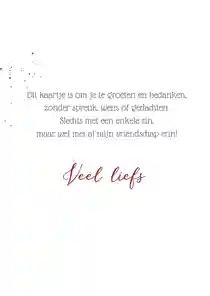 Dit kaartje is om je te groeten en bedanken,
zonder spreuk, wens of gedachten
Slechts met een enkele zin,
maar wel met al mijn vriendschap erin!
Veel liefs